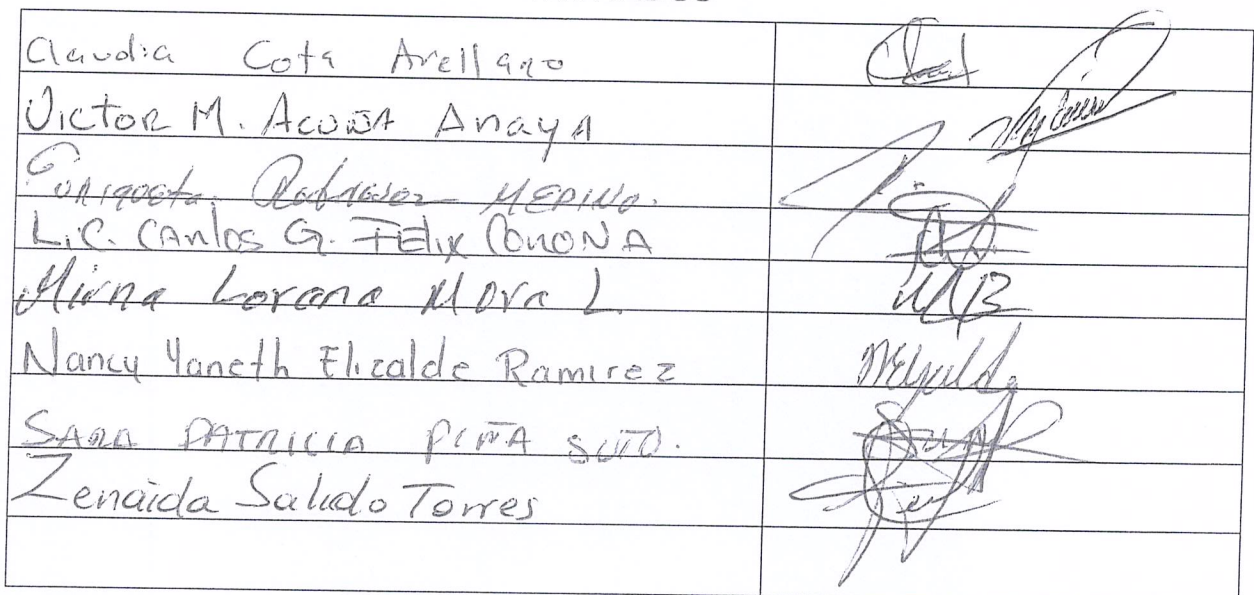 Claudia Cota Arellano
Victor M. Acuña Anaya
MERINO.
L.C. Carlos G. FÉlix CORONA
Mirna Lorena Mora L
Nancy Yaneth Elizalde Ramirez
SARA PATRICIA PIÑA SOTO.
Zenaida Salido Torres